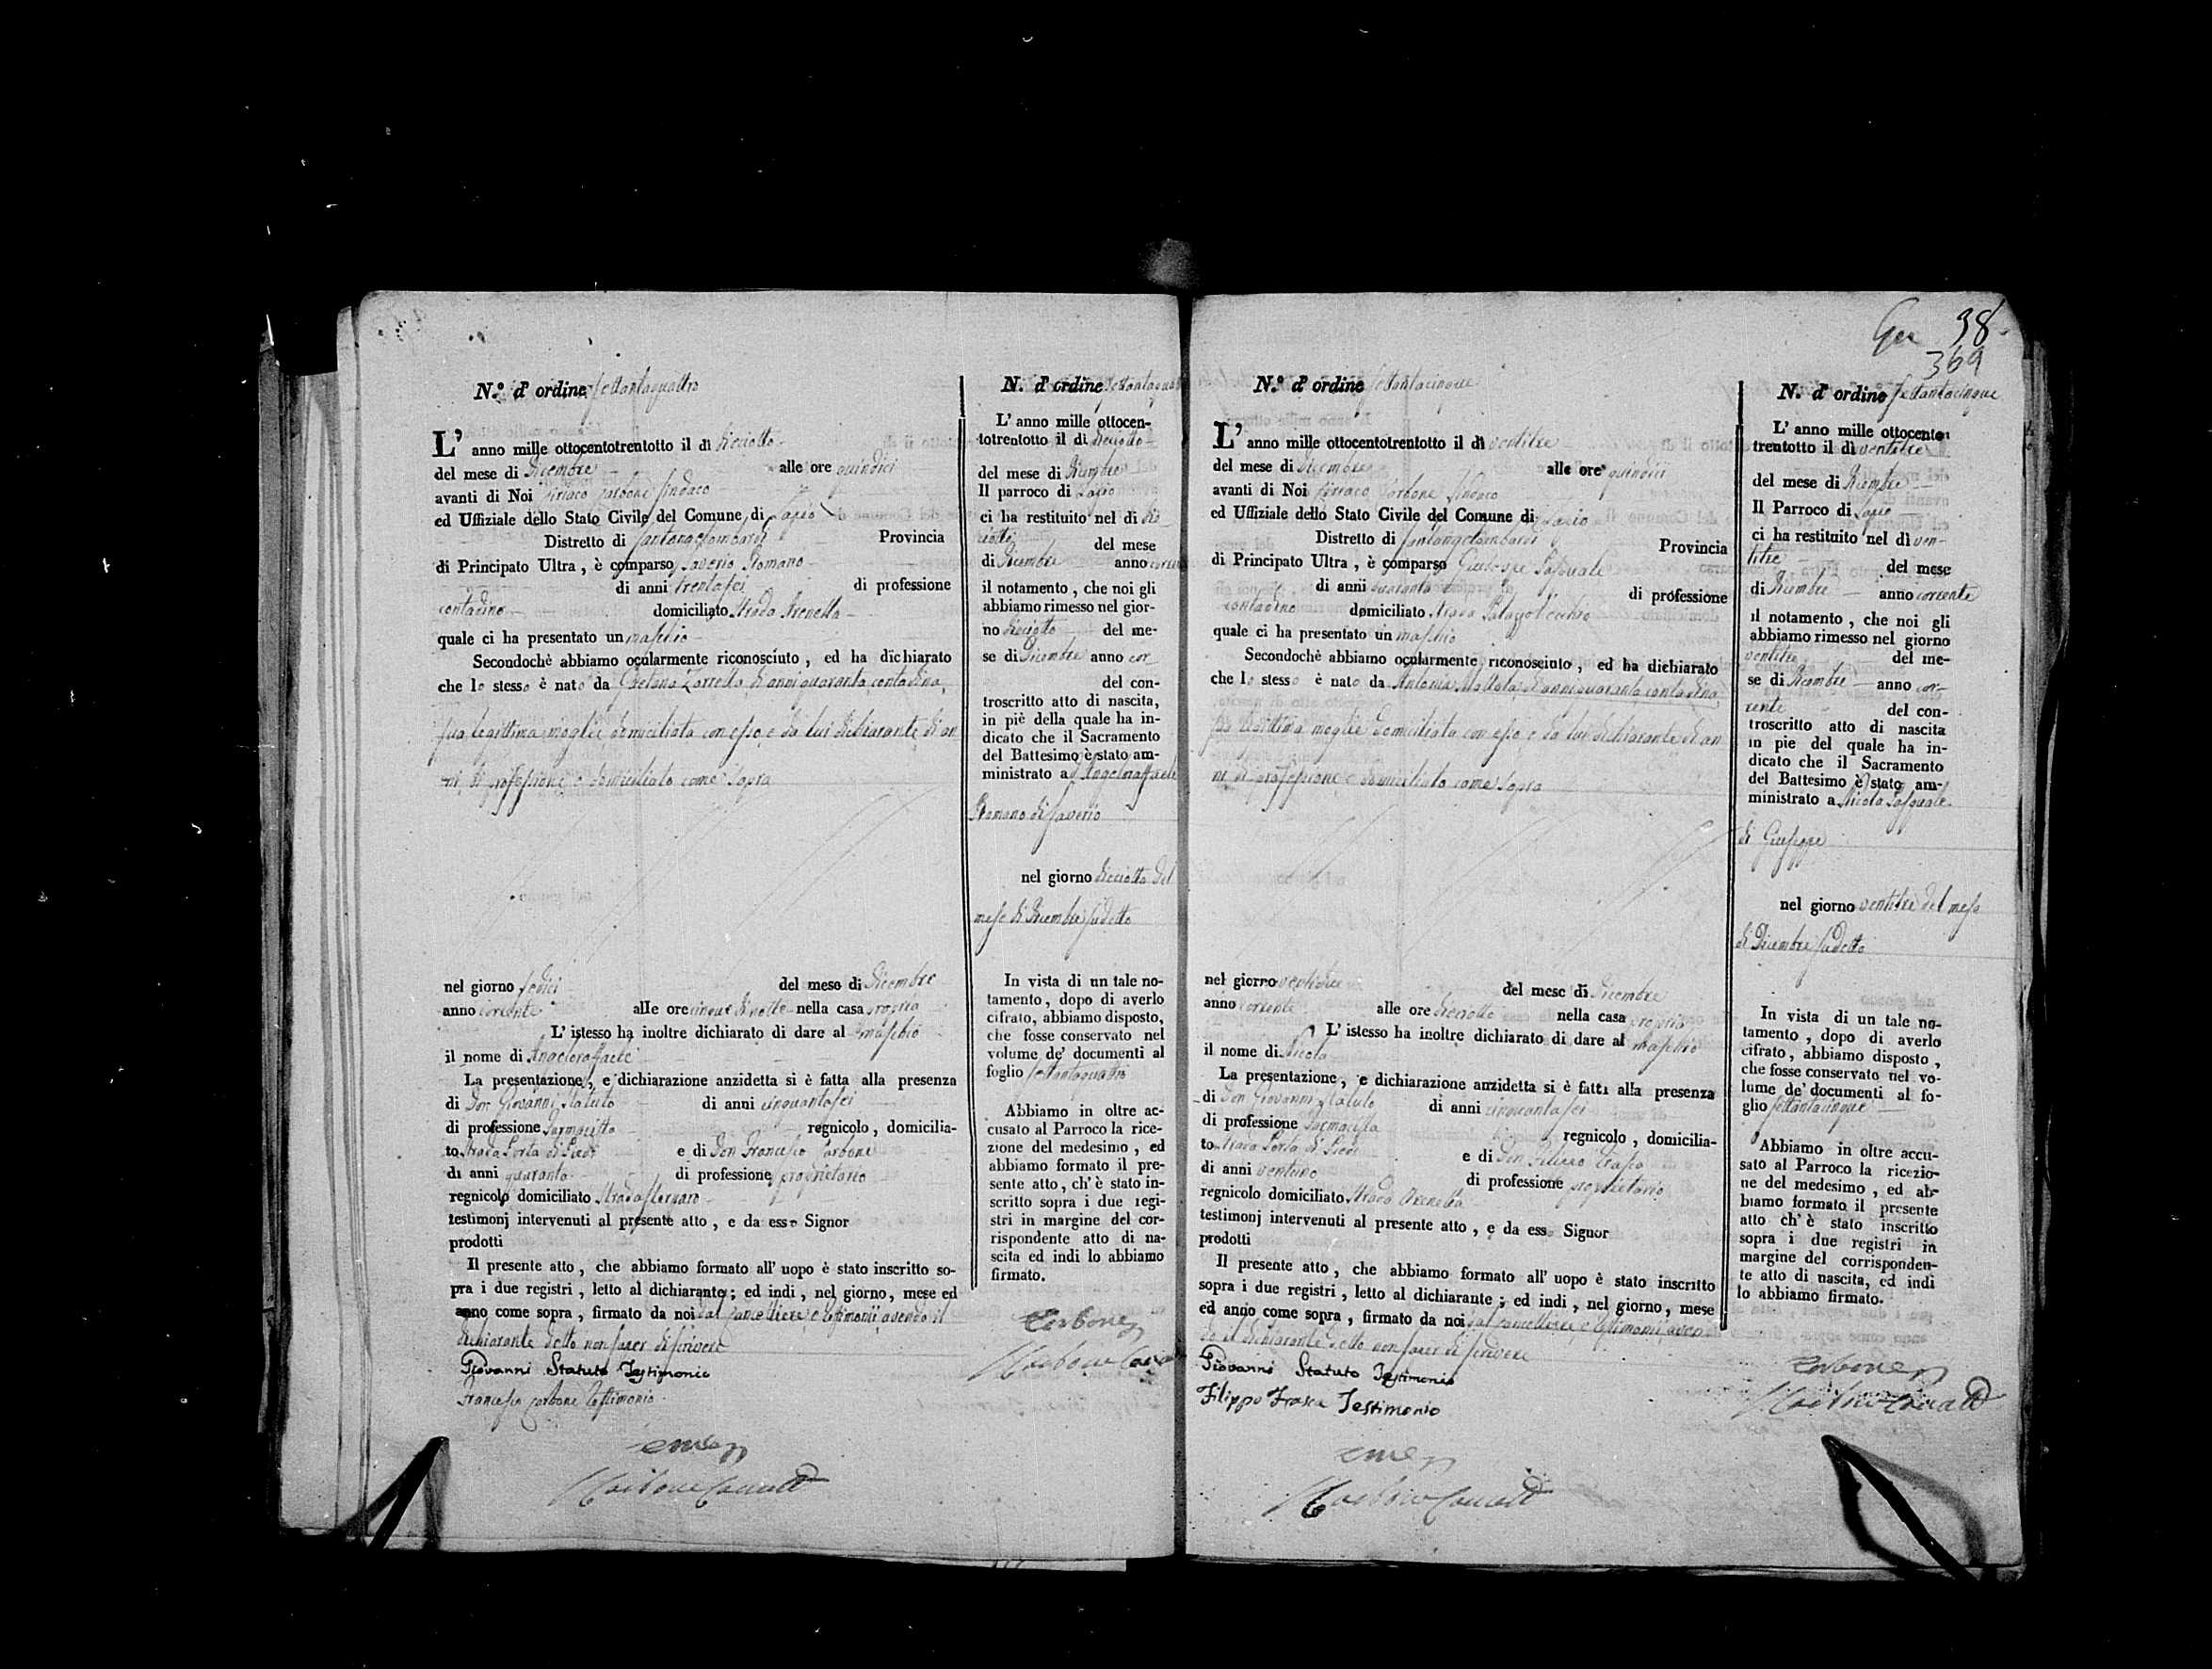 N.º d'ordine settantaquattro
L' anno mille ottocentotrentotto il dì dieciotto
del mese di Dicembre alle ore quindici
avanti di Noi Ciriaco Carbone Sindaco
ed Uffiziale dello Stato Civile del Comune di Lapio
Distretto di Santangelombardi Provincia
di Principato Ultra, è comparso Saverio Romano
di anni trentasei di professione
contadino domiciliato Strada Arenella
quale ci ha presentato un maschio
Secondochè abbiamo ocularmente riconosciuto, ed ha dichiarato
che lo stesso è nato da Gaetana Zarrella di anni quaranta contadina,
sua legittima moglie domiciliata con esso, e da lui dichiarante di an
ni, di professione e domiciliato come sopra
nel giorno sedici del mese di Dicembre
anno corrente alle ore cinque di notte nella casa propria
L' istesso ha inoltre dichiarato di dare al maschio
il nome di Angeloraffaele
La presentazione, e dichiarazione anzidetta si è fatta alla presenza
di Don Giovanni Statuto di anni cinquantasei
di professione Farmacista regnicolo, domicilia-
to Strada Porta di Piedi e di Don Francesco Carbone
di anni quaranta di professione proprietario
regnicolo domiciliato Strada
testimonj intervenuti al presente atto, e da esso Signor
prodotti
Il presente atto, che abbiamo formato all' uopo è stato inscritto so-
pra i due registri, letto al dichiarante; ed indi, nel giorno, mese ed
anno come sopra, firmato da noi dal cancelliere e testimonii avendo il
dichiarante detto non saper di scrivere
Giovanni Statuto Testimonio
Francesco Carbone Testimonio
N. d'ordine
L' anno mille ottocen-
totrentotto il dì dieciotto
del mese di Dicembre
Il parroco di Lapio
ci ha restituito nel dì die
ciotto del mese
di Dicembre anno corrente
il notamento, che noi gli
abbiamo rimesso nel gior-
no dieciotto del me-
se di Dicembre anno cor-
del con-
troscritto atto di nascita,
in piè della quale ha in-
dicato che il Sacramento
del Battesimo è stato am-
ministrato a Angeloraffaele
Romano di Saverio
nel giorno dieciotto del
mese di Dicembre sudetto
In vista di un tale no-
tamento, dopo di averlo
cifrato, abbiamo disposto,
che fosse conservato nel
volume de' documenti al
foglio settantaquattro
Abbiamo in oltre ac-
cusato al Parroco la rice-
zione del medesimo, ed
abbiamo formato il pre-
sente atto, ch' è stato in-
scritto sopra i due regi-
stri in margine del cor-
rispondente atto di na-
scita ed indi lo abbiamo
firmato.
Carbone
38
369
N.º d'ordine settantacinque
L' anno mille ottocentotrentotto il dì ventitre
del mese di Dicembre alle ore quindici
avanti di Noi Ciriaco Carbone Sindaco
ed Uffiziale dello Stato Civile del Comune di Lapio
Distretto di Santangelombardi Provincia
di Principato Ultra, è comparso Giuseppe Pasquale
di anni quaranta di professione
contadino domiciliato Strada Palazzo Vecchio
quale ci ha presentato un maschio
Secondochè abbiamo ocularmente riconosciuto, ed ha dichiarato
che lo stesso è nato da Antonia Mottola di anni quaranta contadina
sua legittima moglie domiciliata con esso e da lui dichiarante di an
ni di professione e domiciliato come sopra
nel giorno ventidue del mese di Dicembre
anno corrente alle ore dieciotto nella casa propria
L' istesso ha inoltre dichiarato di dare al maschio
il nome di Nicola
La presentazione, e dichiarazione anzidetta si è fatta alla presenza
di Don Giovanni Statuto di anni cinquantasei
di professione Farmacista regnicolo, domicilia-
to Strada Porta di Piedi e di Don Filippo Frasca
di anni ventuno di professione proprietario
regnicolo domiciliato Strada Arenella
testimonj intervenuti al presente atto, e da esso Signor
prodotti
Il presente atto, che abbiamo formato all' uopo è stato inscritto
sopra i due registri, letto al dichiarante; ed indi, nel giorno, mese
ed anno come sopra, firmato da noi dal cancelliere e testimonii aven
do il dichiarante detto non saper di scrivere
Giovanni Statuto Testimonio
Filippo Frasca Testimonio
N. d'ordine settantacinque
L' anno mille ottocento
trentotto il dì ventitre
del mese di Dicembre
Il Parroco di Lapio
ci ha restituito nel dì ven-
titre del mese
di Dicembre anno corrente
il notamento, che noi gli
abbiamo rimesso nel giorno
ventitre del me-
se di Dicembre anno cor-
rente del con-
troscritto atto di nascita
in pie del quale ha in-
dicato che il Sacramento
del Battesimo è stato am-
ministrato a Nicola Pasquale
di Giuseppe
nel giorno ventitre del mese
di Dicembre sudetto
In vista di un tale no-
tamento, dopo di averlo
cifrato, abbiamo disposto,
che fosse conservato nel vo-
lume de' documenti al fo-
glio settantacinque
Abbiamo in oltre accu-
sato al Parroco la ricezio-
ne del medesimo, ed ab-
biamo formato il presente
atto ch' è stato inscritto
sopra i due registri in
margine del corrisponden-
te atto di nascita, ed indi
lo abbiamo firmato.
Carbone